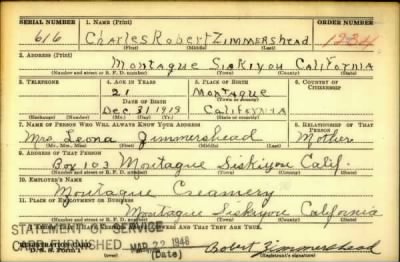 SERIAL NUMBER 1. NAME (Print) ORDER NUMBER
616 Charles Robert Zimmershead 1234
(First) (Middle) (Last)
2. ADDRESS (Print)
Montague Siskiyou California
(Number and street or R. F. D. number) (Town) (County) (State)
3. TELEPHONE 4. AGE IN YEARS 5. PLACE OF BIRTH 6. COUNTRY OF CITIZENSHIP
21 Montague
DATE OF BIRTH (Town or county)
Dec 31 1919 California
(Exchange) (Number) (Mo.) (Day) (Yr.) (State or country)
7. NAME OF PERSON WHO WILL ALWAYS KNOW YOUR ADDRESS 8. RELATIONSHIP OF THAT PERSON
Mrs. Leona Zimmershead Mother
(Mr., Mrs., Miss) (First) (Middle) (Last)
9. ADDRESS OF THAT PERSON
Box 103 Montague Siskiyou Calif.
(Number and street or R. F. D. number) (Town) (County) (State)
10. EMPLOYER'S NAME
Montague Creamery
11. PLACE OF EMPLOYMENT OR BUSINESS
Montague Siskiyou California
(Number and street or R. F. D. number) (Town) (County) (State)
STATEMENT OF SERVICE
ANSWERS AND THAT THEY ARE TRUE.
FURNISHED MAR 22 1948
REGISTRATION CARD
D. S. S. Form 1 (Date) Robert Zimmershead
(Registrant's signature)